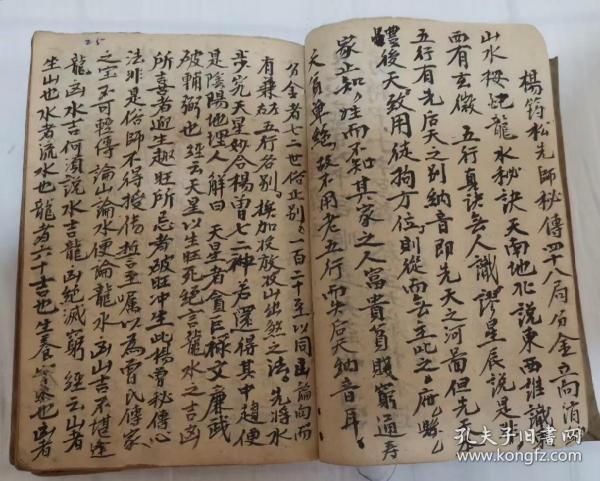 楊筠松先師秘傳四十八局分金立向消
山水 龍水秘訣天南地北說東西誰識
西有玄微 五行真訣無人識謬星辰說是
五行有先后天之別納音即先天之河圖但先
後天致用徒拘方位則從而無主此之
家止知 而不知其家之人富貴貧賤窮通寿
天 故不用老五行而失后天納音耳
25
分金者七二世俗止别一百二十至以同 論向而
有兼 五行各别 挨加投放放山 然之法先將水
步究天星妙合楊曾七二神若還得其中趣便
是陰陽地理人解曰 天星者貪巨祿文廉武
破輔弼也經云天星以生旺死絕言龍水之吉凶
所喜者迎生趣旺所忌者破旺冲生此楊曾秘傳心
法非是俗師不得授 誓言至囑以為曾氏傳家
之宝不可輕傳論山論水便論龍水凶山吉不堪
龍凶水吉何須說水吉龍凶絕滅窮 經云山者
坐山也水者流水也龍者六十 也生養 也凶者
孔夫子旧书网
www.kongfz.com